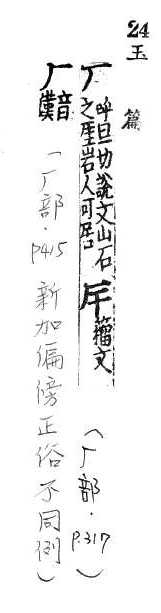 24 玉篇
厂 呼旦切說文山石之厓岩人可居 厈籀文 （厂部．P.317）
厂 音漢（厂部．P415 新加偏傍正俗不同例）